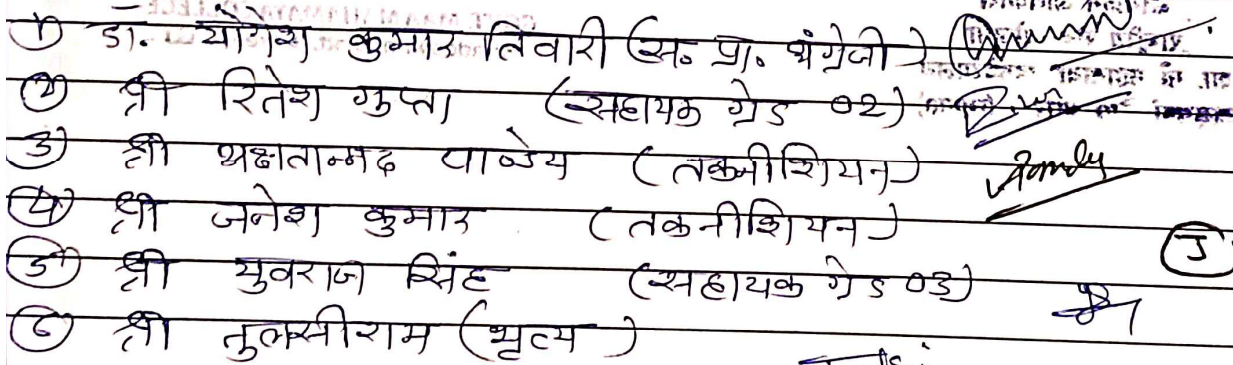 ① डॉ. योगेश कुमार तिवारी (स. प्रा. अंग्रेजी)
② श्री रितेश गुप्ता (सहायक ग्रेड 02)
③ श्री अक्षतानन्द पाण्डेय (तकनीशियन)
④ श्री जनेश कुमार (तकनीशियन)
⑤ श्री युवराज सिंह (सहायक ग्रेड 03)
⑥ श्री तुलसीराम (भृत्य)